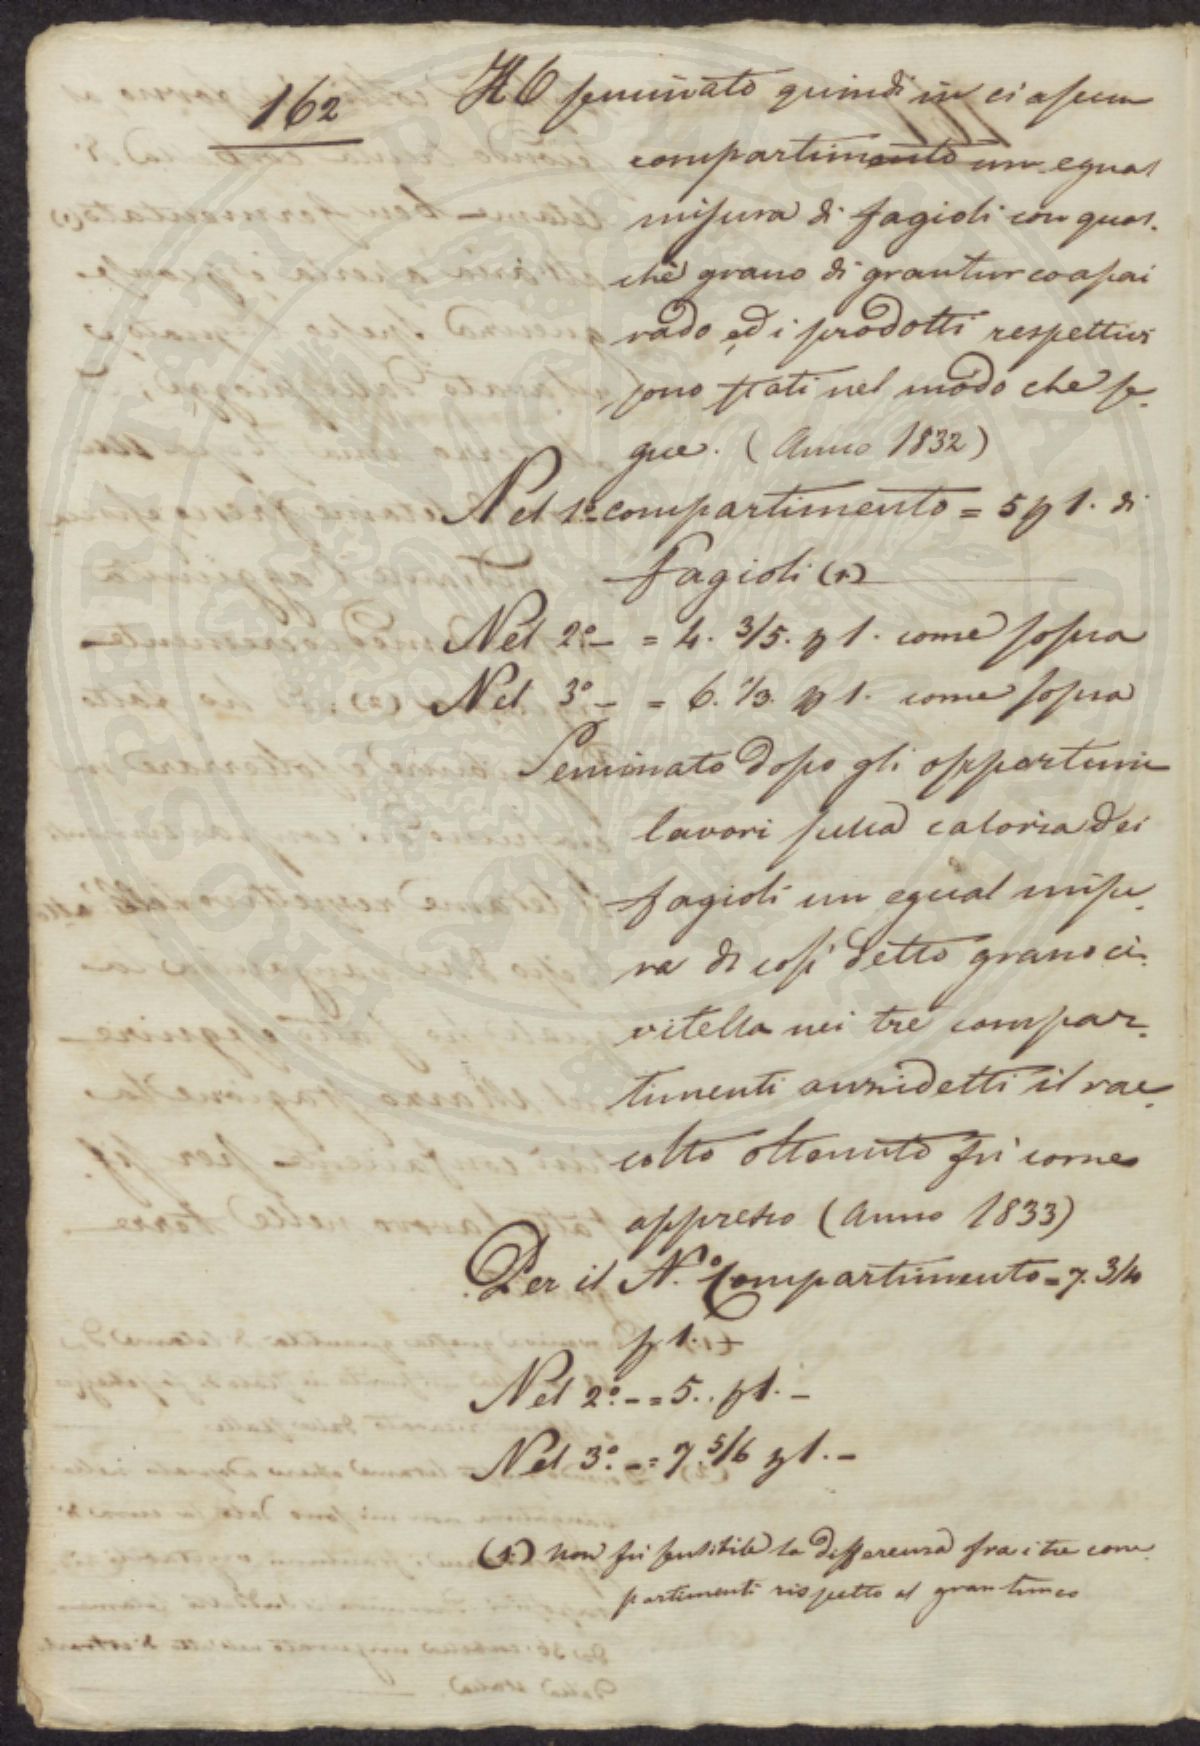 162
Hò seminato quindi in ciascun
compartimento un egual
misura di fagioli con qual-
che grano di granturco apai
rado ed i prodotti respettivi
sono stati nel modo che se-
gue. (Anno 1832)
Nel 1º compartimento = 5 p 1. di
fagioli (1)
Nel 2º - = 4. 3/5. p 1. come sopra
Nel 3º - = 6. 1/3. p 1. come sopra
Seminato dopo gli opportuni
lavori sulla caloria dei
fagioli un egual misu-
ra di così detto grano ci-
vitella nei tre compar-
timenti anzidetti il rac-
colto ottenuto fù come
appresso (Anno 1833)
Per il N.º 1 compartimento = 7. 3/4
p 1. -
Nel 2º - = 5.. p 1. -
Nel 3º - = 7. 5/6 p 1. -
(1) Non fù sensibile la differenza fra i tre com-
partimenti rispetto al granturco